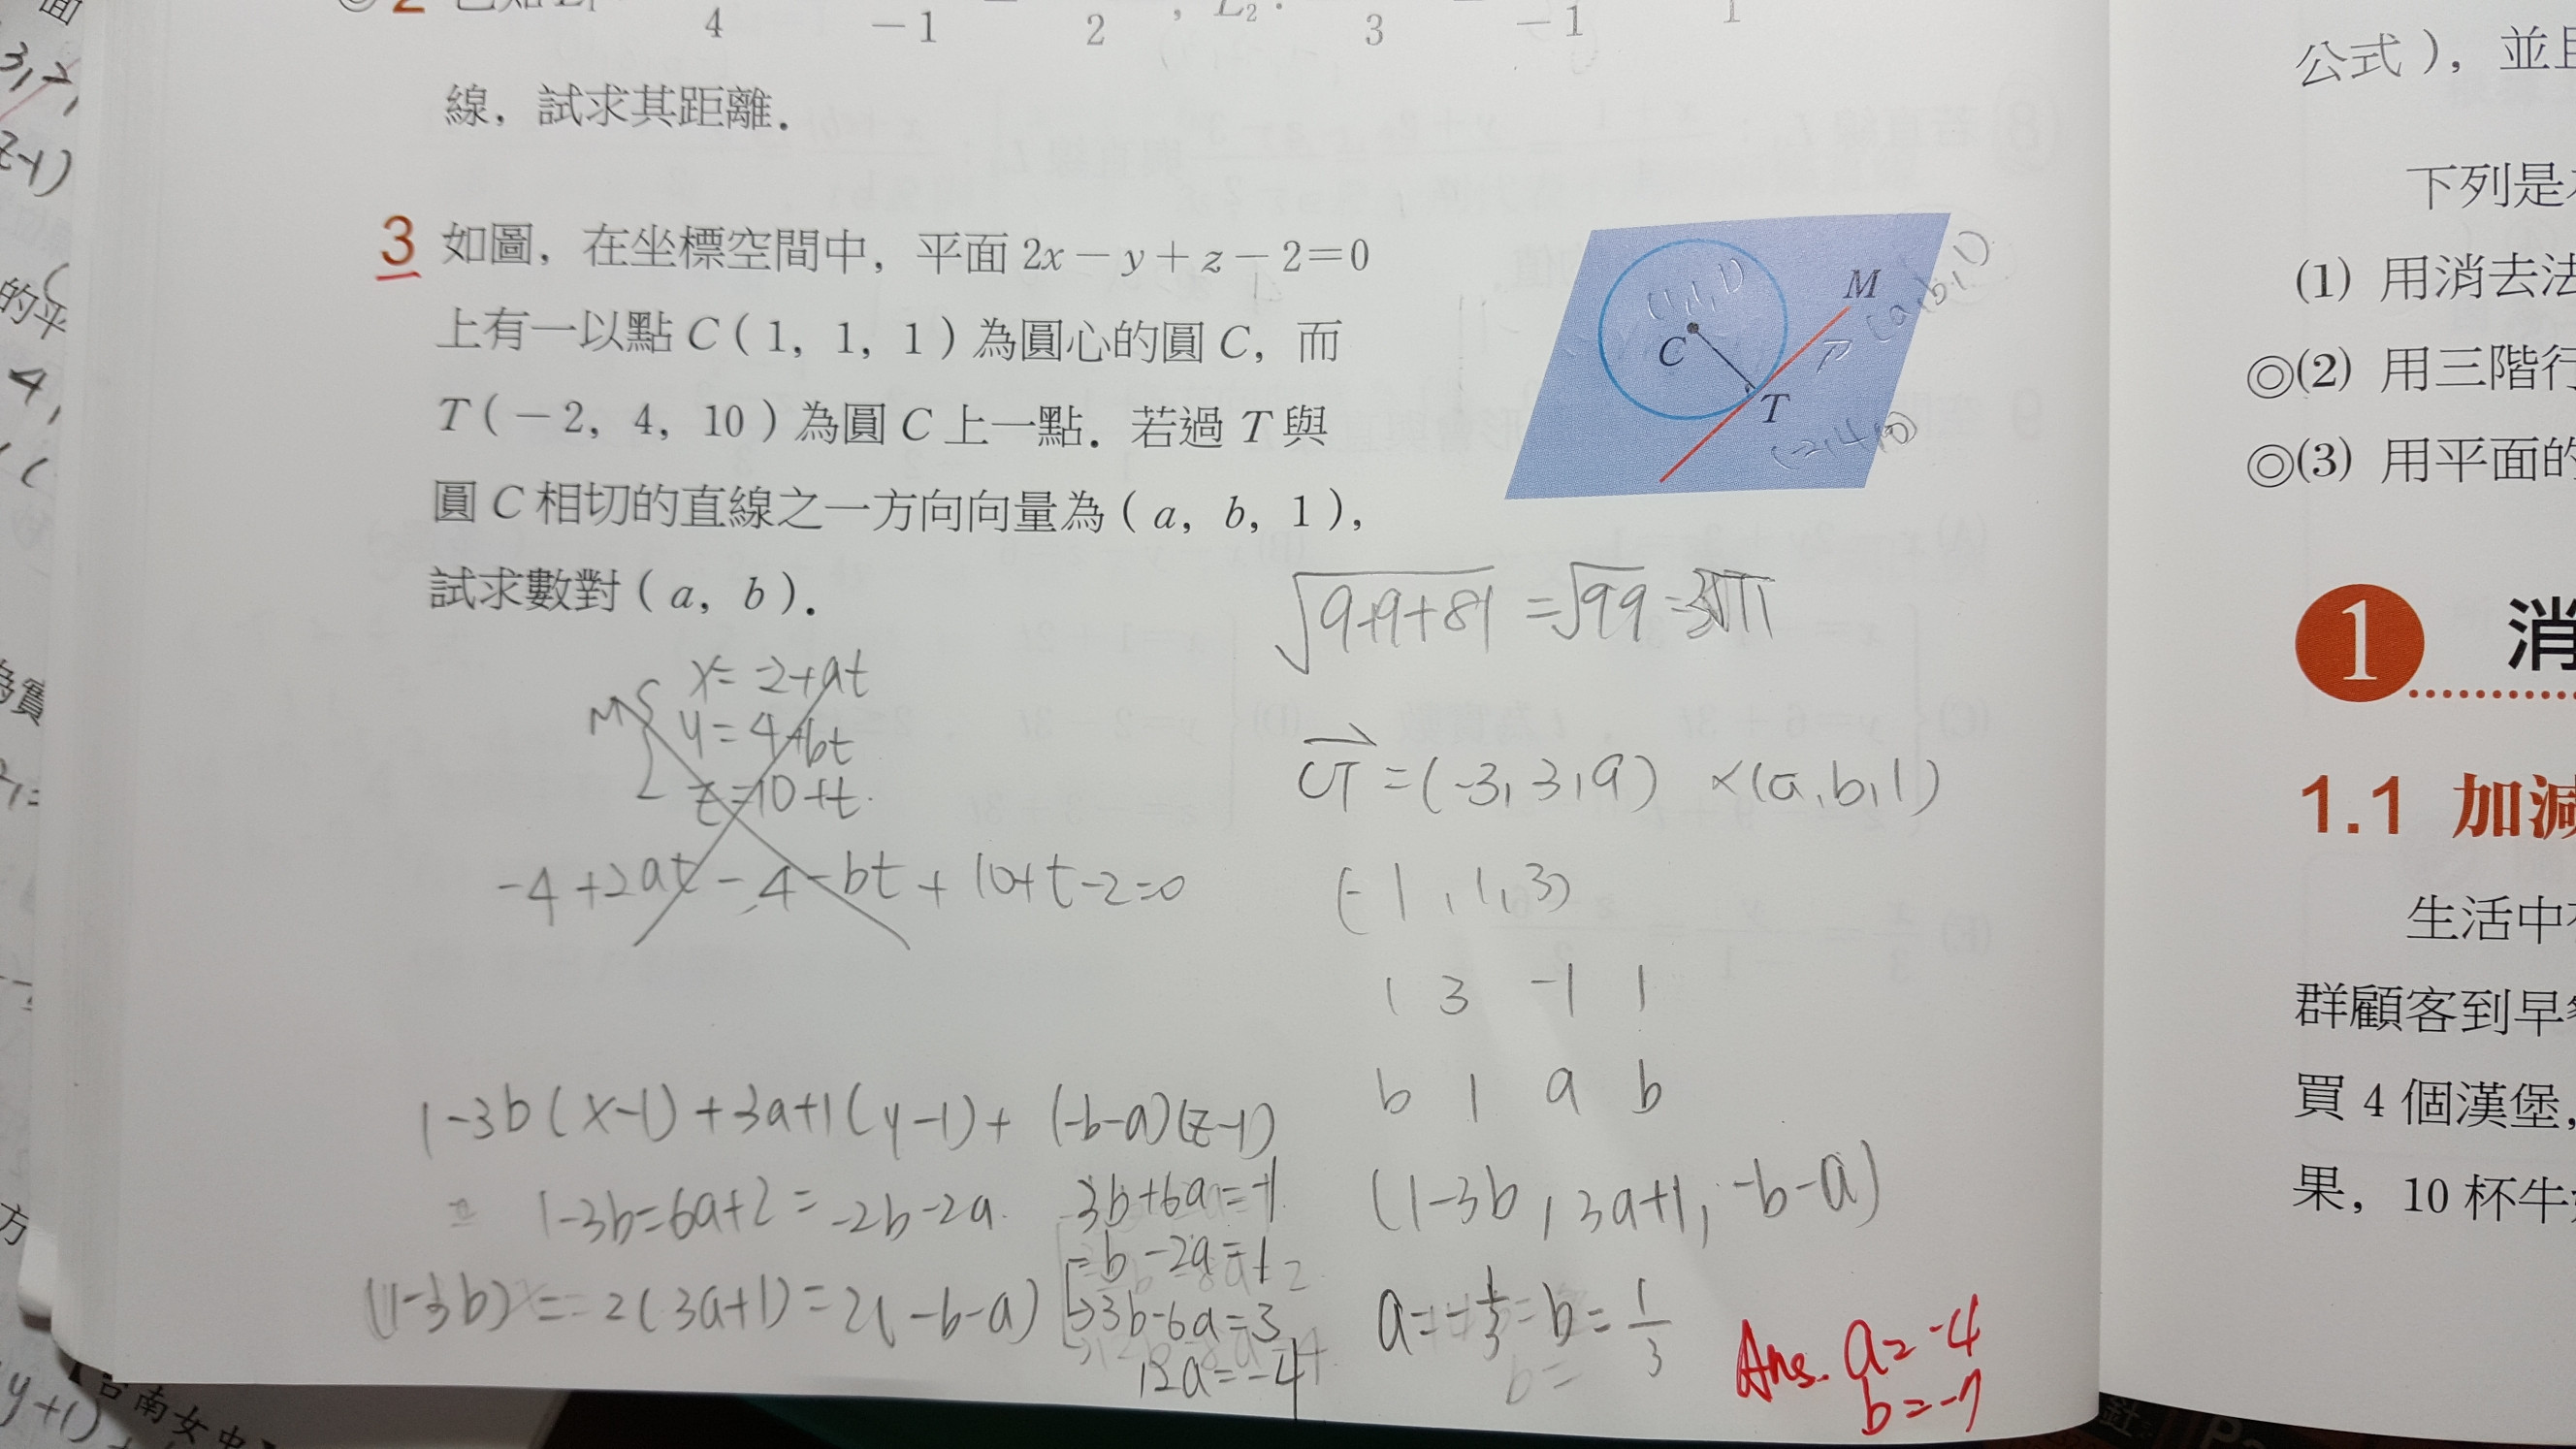 4 −1 2 , L₂ : 3 −1 1
線, 試求其距離.
3 如圖, 在坐標空間中, 平面 2x − y + z − 2 = 0
上有一以點 C ( 1, 1, 1 ) 為圓心的圓 C, 而
T ( − 2, 4, 10 ) 為圓 C 上一點. 若過 T 與
圓 C 相切的直線之一方向向量為 ( a, b, 1 ),
試求數對 ( a, b ).
(1,1,1)
C
M
(a,b,1)
T
(-2,4,10)
√9+9+81 = √99 = 3√11
x = -2+at
M
y = 4+bt
z = 10+t.
-4+2at-4-bt+10+t-2=0
CT = (-3, 3, 9) × (a, b, 1)
(-1, 1, 3)
1 3 -1 1
b 1 a b
(1-3b, 3a+1, -b-a)
a = -1/3 b = 1/3
b =
1-3b(x-1)+3a+1(y-1)+(-b-a)(z-1)
= 1-3b=6a+2=-2b-2a.
(1-3b) = -2(3a+1) = 2(-b-a)
3b+6a=-1
-b-2a=1
3b-6a=3
12a=-4
Ans. a=-4
b=-7
3,2,
z-1)
的平
4,
方
y+1)
台南女中
公式 ), 並且
下列是
(1) 用消去法
◎(2) 用三階行
◎(3) 用平面的
1 消
1.1 加減
生活中
群顧客到早
買 4 個漢堡,
果, 10 杯牛